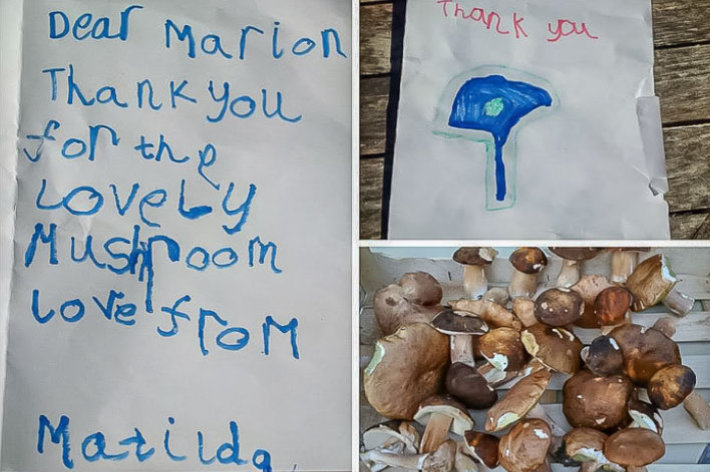 Dear Marion
Thank you
for the
LoveLy
Mushroom
Love from
Matilda
Thank you